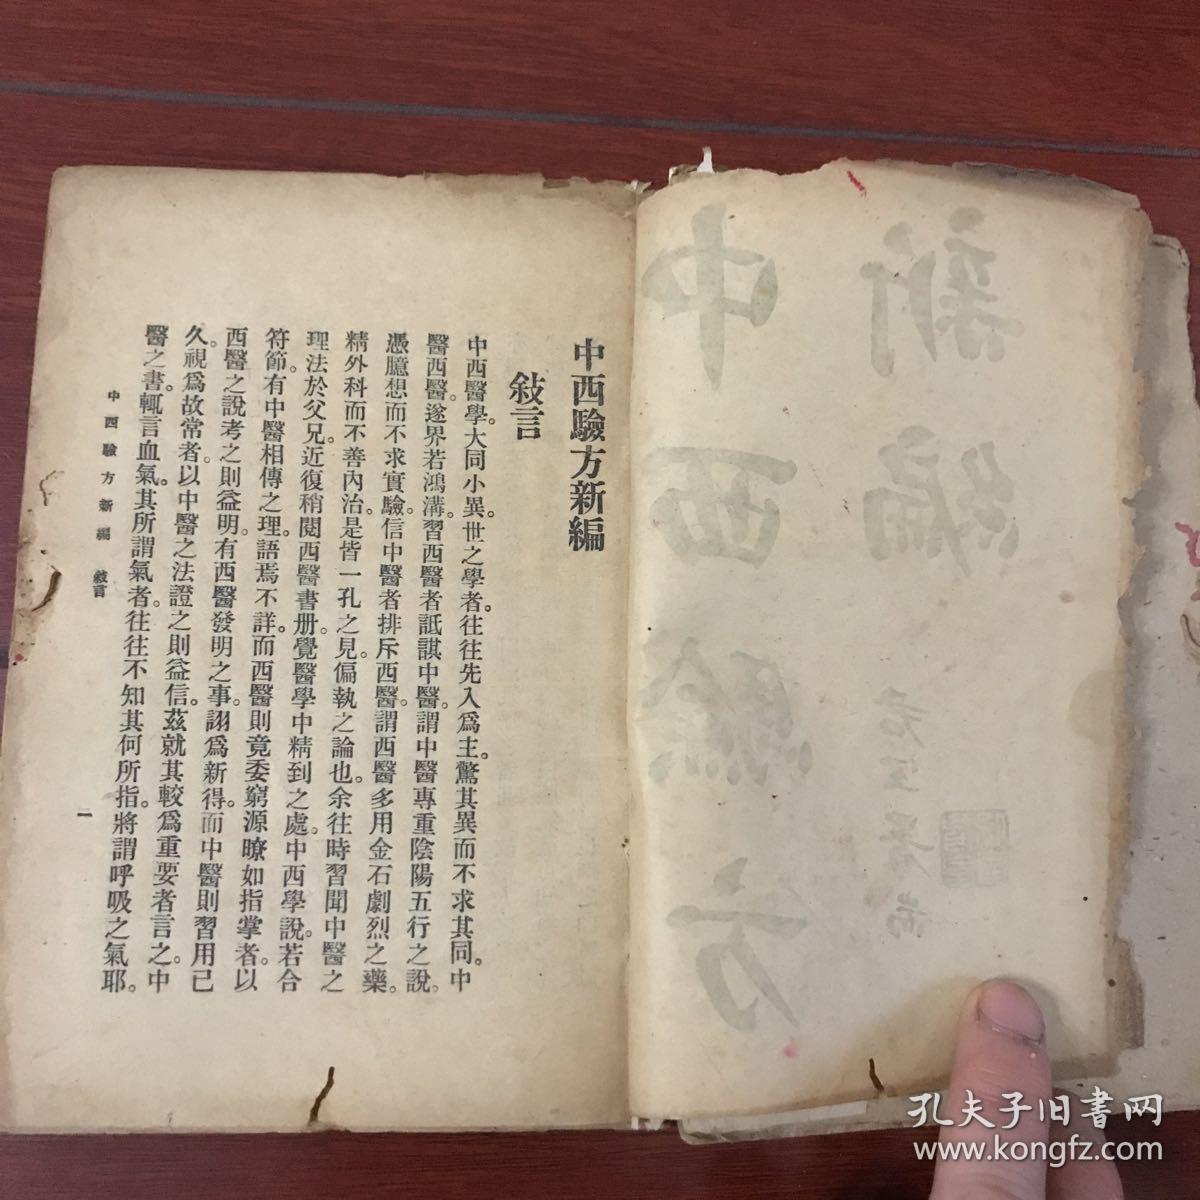 中西驗方新編
敍言
中西醫學。大同小異。世之學者。往往先入爲主。驚其異而不求其同。中
醫西醫。遂界若鴻溝。習西醫者詆諆中醫。謂中醫專重陰陽五行之說。
憑臆想而不求實驗。信中醫者排斥西醫。謂西醫多用金石劇烈之藥。
精外科而不善內治。是皆一孔之見。偏執之論也。余往時習聞中醫之
理法於父兄。近復稍閱西醫書册。覺醫學中精到之處。中西學說。若合
符節。有中醫相傳之理。語焉不詳。而西醫則竟委窮源。暸如指掌者。以
西醫之說考之則益明。有西醫發明之事。詡爲新得。而中醫則習用已
久。視爲故常者。以中醫之法證之則益信。茲就其較爲重要者言之。中
醫之書。輒言血氣。其所謂氣者。往往不知其何所指。將謂呼吸之氣耶。
中西驗方新編 敍言
一
新編
中西驗方
孔夫子旧書网
www.kongfz.com